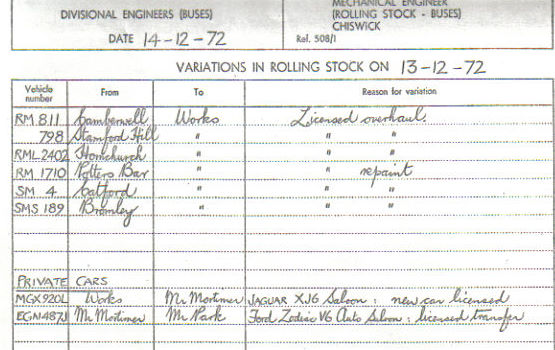 DIVISIONAL ENGINEERS (BUSES)
MECHANICAL ENGINEER
(ROLLING STOCK - BUSES)
CHISWICK
DATE 14-12-72
Ref. 508/1
VARIATIONS IN ROLLING STOCK ON 13-12-72
Vehicle number From To Reason for variation
RM 811 Camberwell Works Licensed overhaul.
798 Stamford Hill " " "
RML 2402 Hornchurch " " "
RM 1710 Potters Bar " " repaint
SM 4 Catford " " "
SMS 189 Bromley " " "
PRIVATE CARS
MGX920L Works Mr Mortimer JAGUAR XJ6 Saloon : new car licensed
EGN487J Mr Mortimer Mr Park Ford Zodiac V6 Auto Saloon : licensed transfer